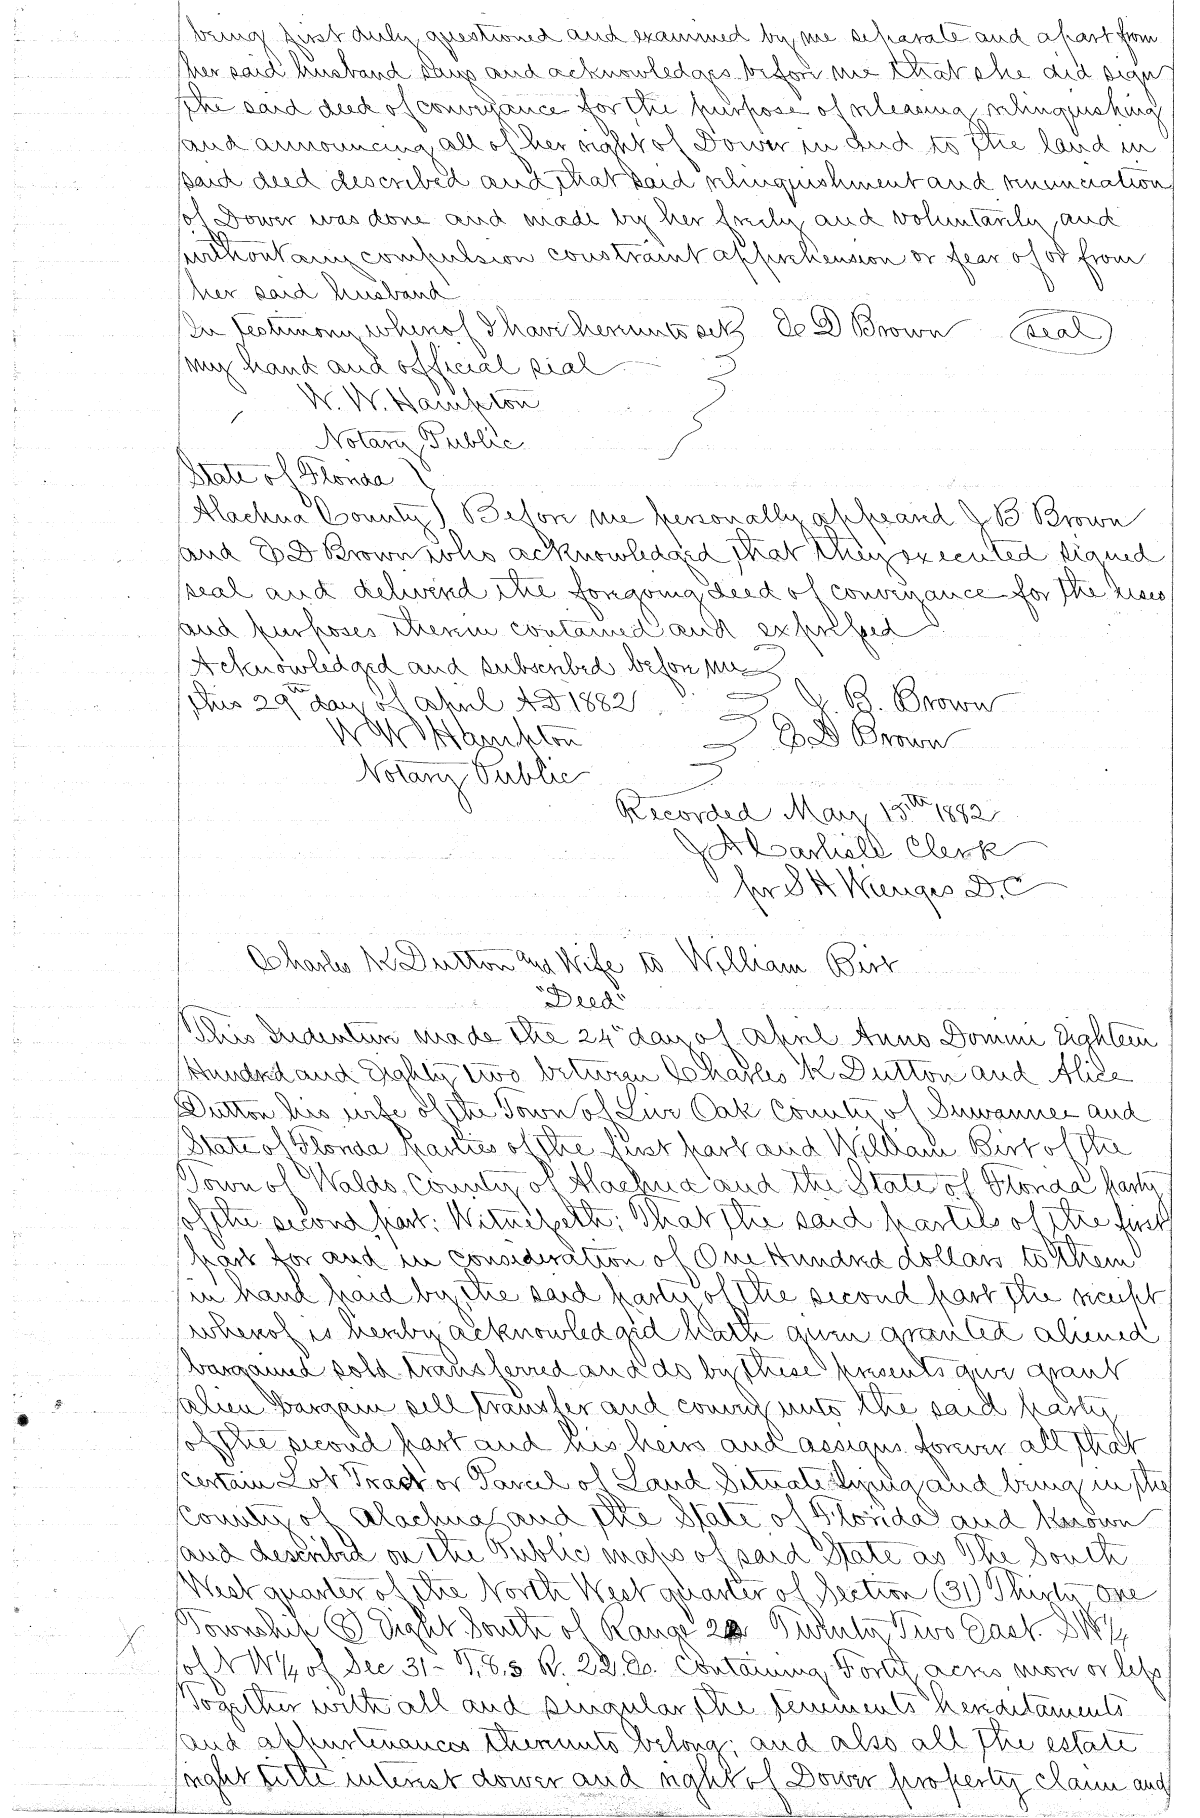 being first duly questioned and examined by me separate and apart from
her said husband says and acknowledges before me that she did sign
the said deed of conveyance for the purpose of releasing relinquishing
and announcing all of her right of Dower in and to the land in
said deed described and that said relinquishment and renunciation
of Dower was done and made by her freely and voluntarily and
without any compulsion constraint apprehension or fear of or from
her said husband
In testimony whereof I have hereunto set E D Brown seal
my hand and official seal
W. W. Hampton
Notary Public
State of Florida
Alachua County) Before me personally appeared J B Brown
and E D Brown who acknowledged that they executed signed
seal and delivered the foregoing deed of conveyance for the uses
and purposes therein contained and expressed
Acknowledged and subscribed before me
this 29th day of April AD 1882 J. B. Brown
W W Hampton E D Brown
Notary Public
Recorded May 15th 1882
J A Carlisle Clerk
pr S H Wienges D.C
Charles K Dutton and Wife to William Birt
"Deed"
This Indenture made the 24" day of April Anno Domini Eighteen
Hundred and Eighty two between Charles K Dutton and Alice
Dutton his wife of the Town of Live Oak County of Suwannee and
State of Florida parties of the first part and William Birt of the
Town of Waldo County of Alachua and the State of Florida party
of the second part; Witnesseth; That the said parties of the first
part for and in consideration of One Hundred dollars to them
in hand paid by the said party of the second part the receipt
whereof is hereby acknowledged hath given granted aliened
bargained sold transferred and do by these presents give grant
alien bargain sell transfer and convey unto the said party
of the second part and his heirs and assigns forever all that
certain Lot Tract or Parcel of Land Situate lying and being in the
County of Alachua and the State of Florida and known
and described on the Public maps of said State as The South
West quarter of the North West quarter of Section (31) Thirty one
Township (8) Eight South of Range 22 Twenty Two East. SW¼
of N W¼ of Sec 31- T,8,S R. 22.E. Containing Forty acres more or less
Together with all and singular the tenements hereditaments
and appurtenances thereunto belong; and also all the estate
right title interest dower and right of Dower property claim and